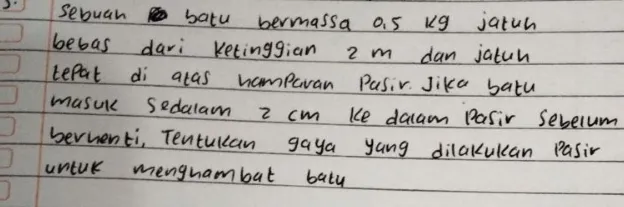 3.
Sebuah batu bermassa 0,5 kg jatuh
bebas dari ketinggian 2 m dan jatuh
tepat di atas hamparan Pasir. Jika batu
masuk Sedalam 2 cm ke dalam Pasir Sebelum
berhenti, Tentukan gaya yang dilakukan Pasir
untuk menghambat batu